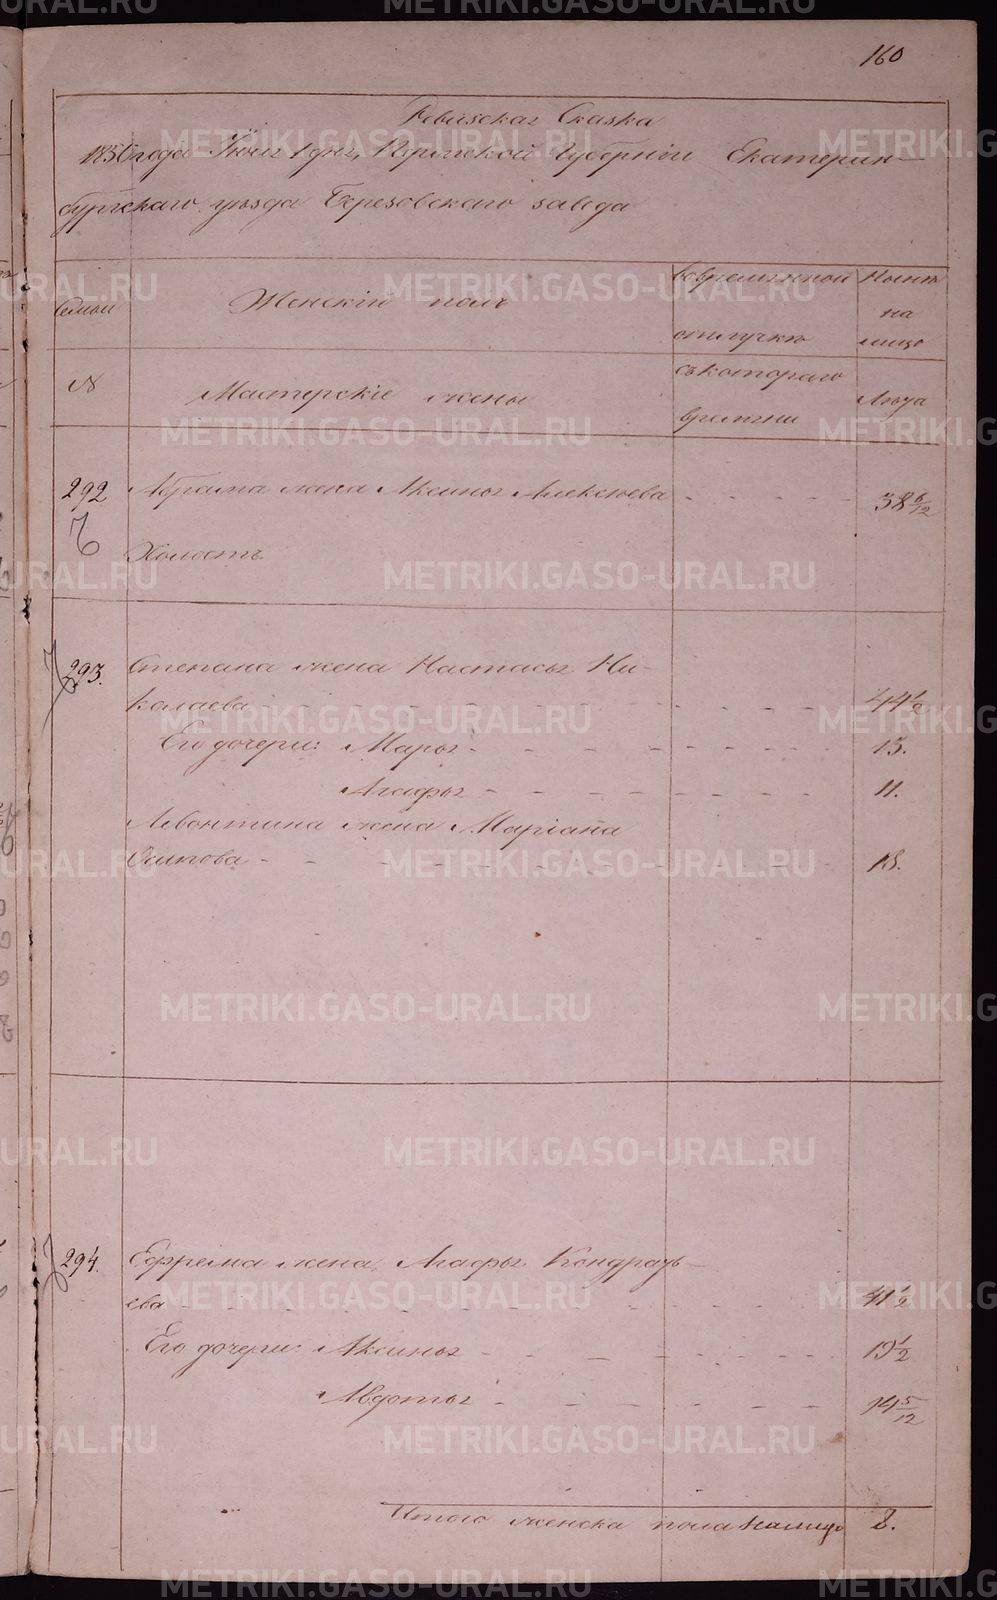 160
Ревизская Сказка
1850 года Іюня 1 дня, Пермской Губерніи Екатерин-
бургскаго уезда Березовскаго завода
Семьи
Женскій полъ
во временной
отлучкѣ
Нынѣ
на
лицо
№
Мастерскіе жены
съ котораго
времени
Лѣта
292 Абрама жена Аксинья Алексѣева - - - - - 38 6/12
Холостъ
293. Степана жена Настасья Ни-
колаева - - - - - 44 1/2
Его дочери: Марья - - - - - 15.
Агафья - - - - - 11.
Левонтина жена Маріана
Осипова - - - - - 18.
294. Ефрема жена Агафья Кондрать-
ева - - - - - 41 1/2
Его дочери: Аксинья - - - - - 19 1/2
Авдотья - - - - - 14 5/12
Итого женска пола налицо 8.
METRIKI.GASO-URAL.RU